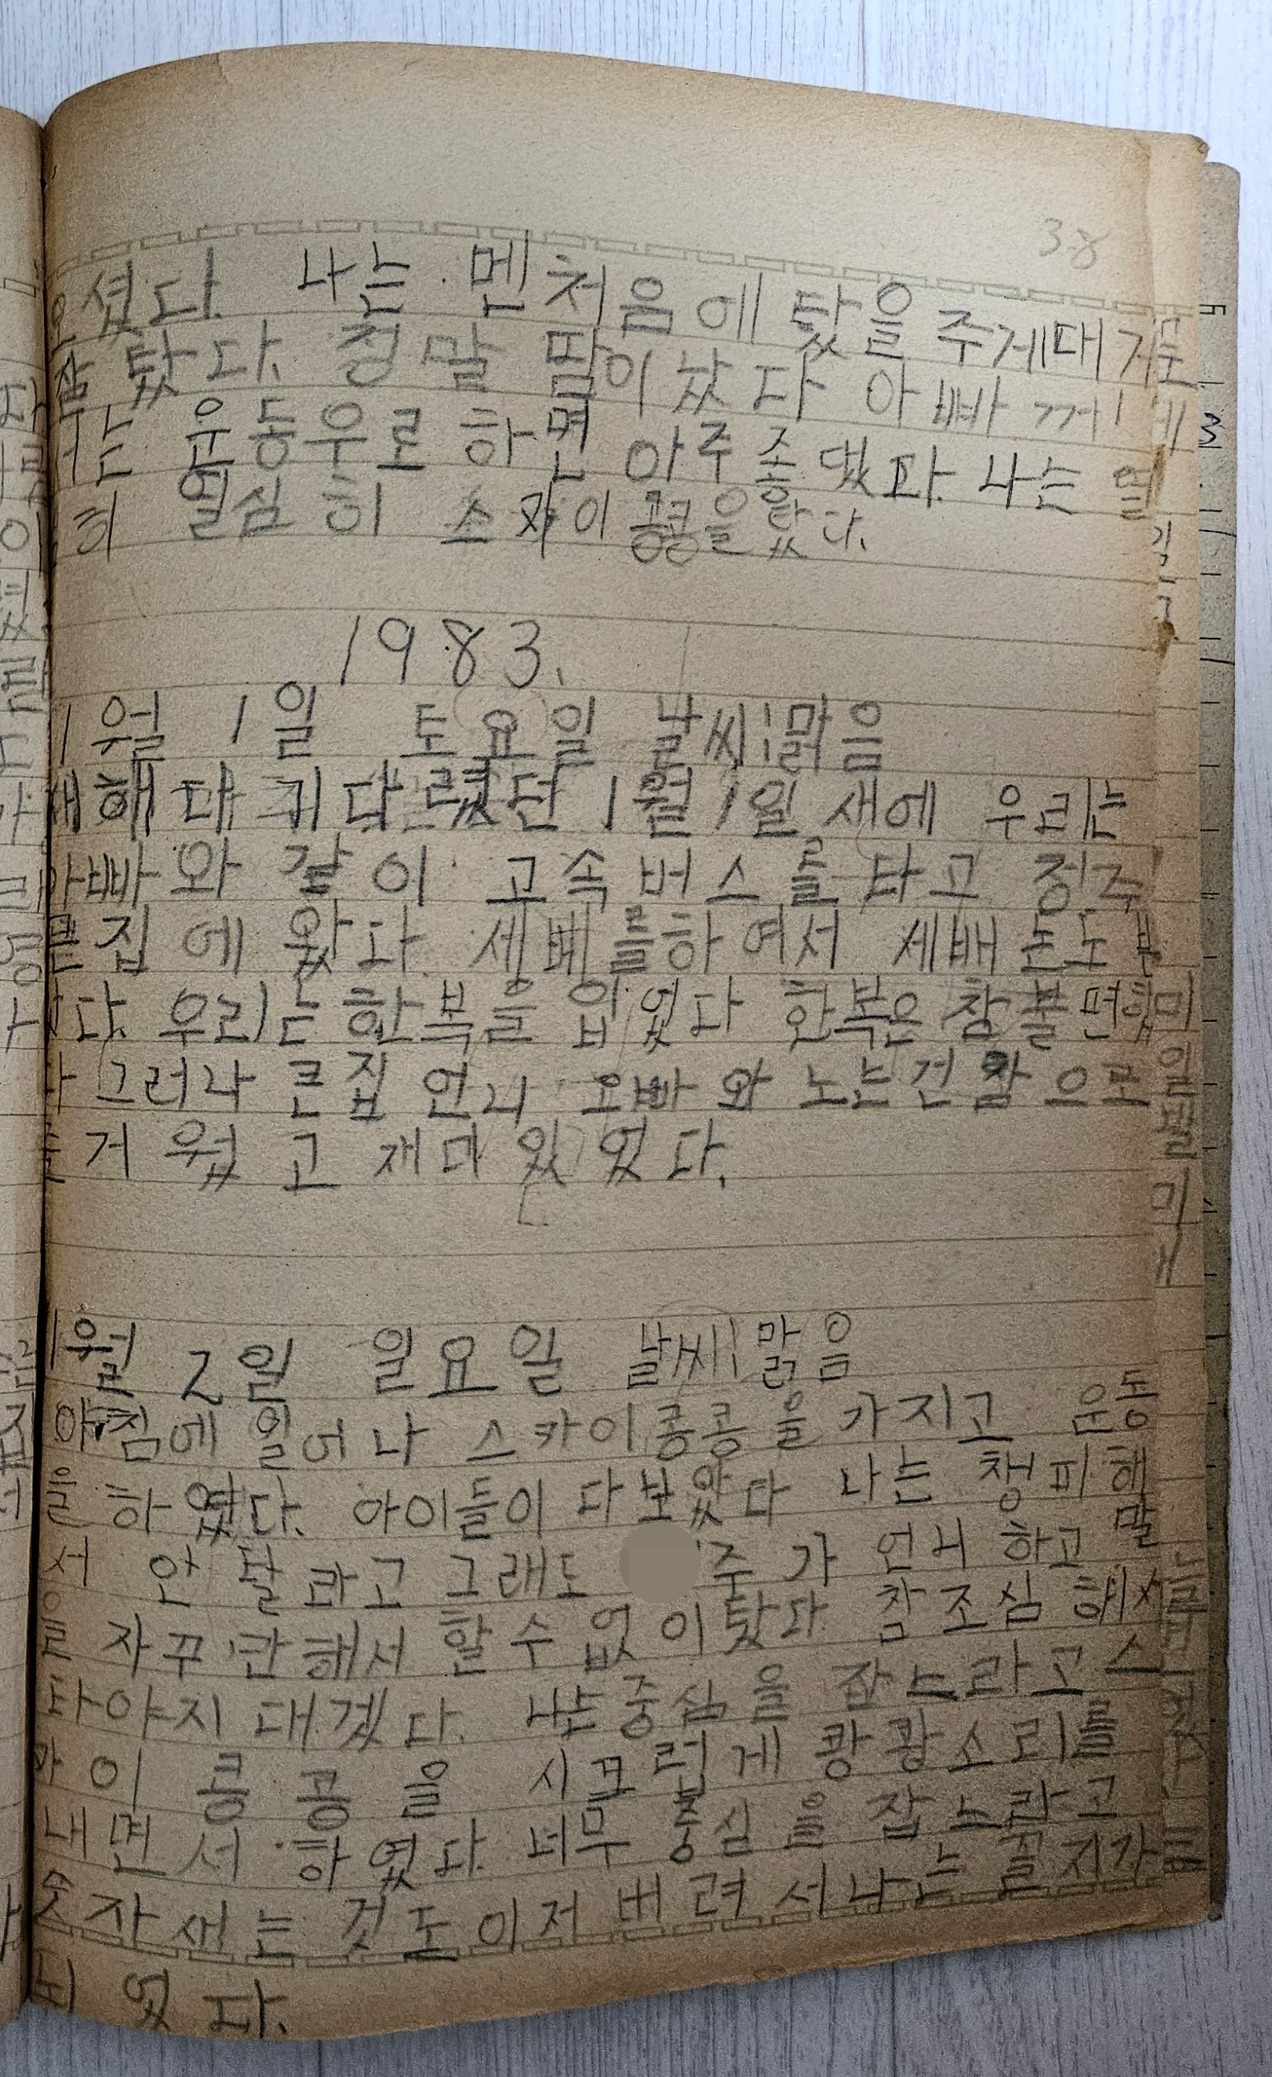 38
오셨다. 나는 멘처음에 탔을 주게대
참 탔다. 정말 땀이 났다 아빠께
는 운동우로 하면 아주 좋댔다. 나는 열
히 열심히 스카이콩콩을 탔다.
1983.
1월 1일 토요일 날씨:맑음
새해 대 기다렸던 1월 1일 새에 우리는
아빠와 같이 고속버스를 타고 정주
큰집에 왔다. 세뻬를하여서 세배돈도 받
다. 우리는 한복을 입었다 한복은 참 불편했
다 그러나 큰집 언니 오빠와 노는건 참으로
즐거웠고 재미있었다.
1월 2일 일요일 날씨:맑음
아침에 일어나 스카이콩콩을 가지고 운동
을 하였다. 아이들이 다보았다 나는 챙피해
서 안탈라고 그래도 주가 언니 하고 말
을 자꾸 만해서 할수없이탔다 참조심해서
타야지 대겠다. 나는중심을 잡느라고 스
카이콩콩을 시끄럽게 쾅쾅소리를
내면서 하였다. 너무 중심을 잡느라고
숫자 세는 것도 이저버려서 나는 꼴지가
되었다.